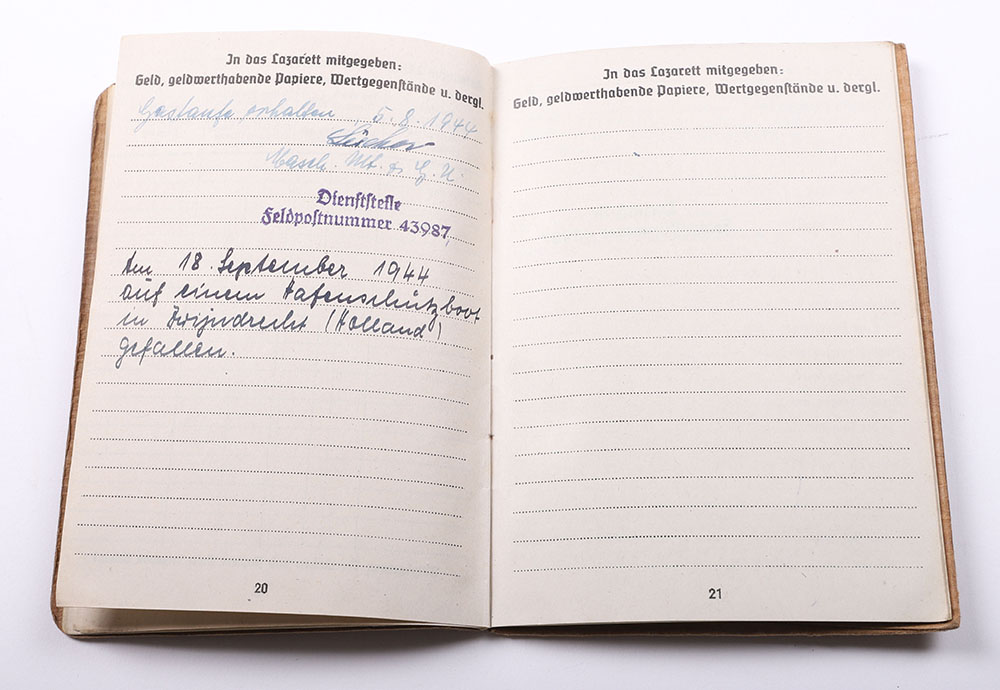 In das Lazarett mitgegeben:
Geld, geldwerthabende Papiere, Wertgegenstände u. dergl.
erhalten 5.8.1944
Masch. Mt. d.
Dienststelle
Feldpostnummer 43987
Am 18. September 1944
auf einem Hafenschutzboot
in Zwijndrecht (Holland)
gefallen.
20
In das Lazarett mitgegeben:
Geld, geldwerthabende Papiere, Wertgegenstände u. dergl.
21